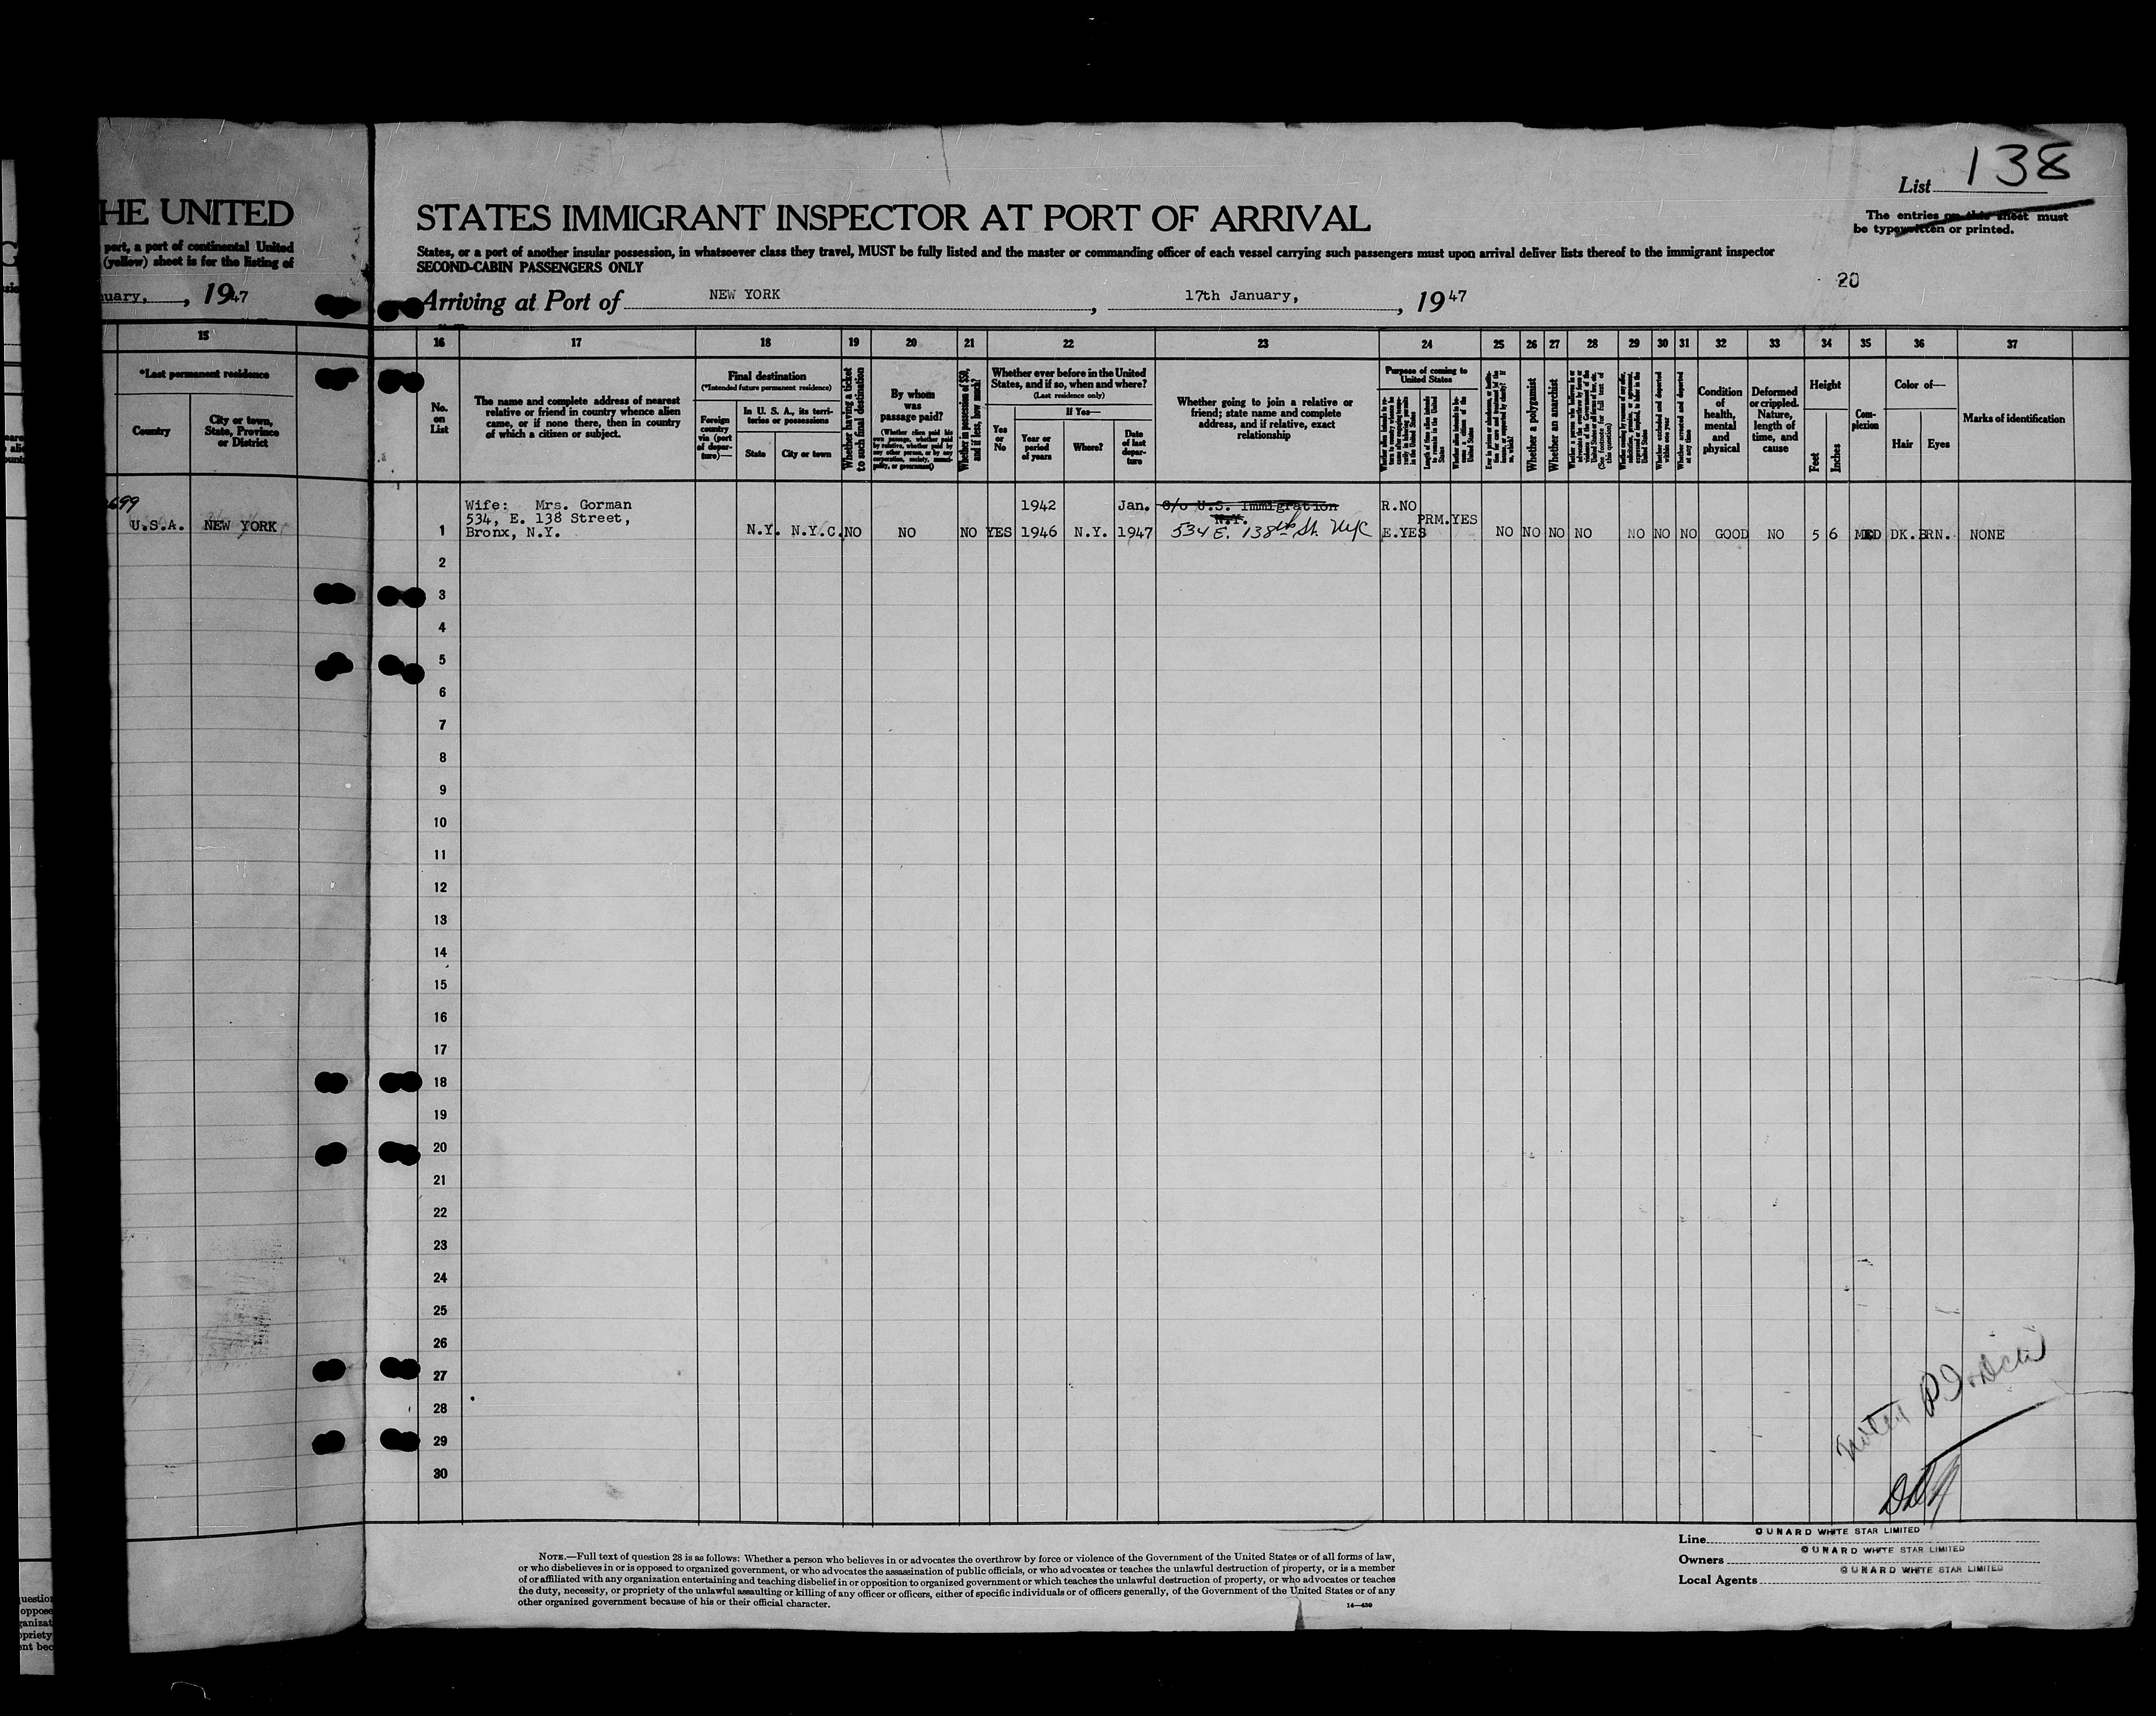 HE UNITED
port, a port of continental United
(yellow) sheet is for the listing of
uary, , 1947
15
*Last permanent residence
Country
City or town, State, Province or District
699
U.S.A. NEW YORK
List 138
The entries on this sheet must
be typewritten or printed.
20
STATES IMMIGRANT INSPECTOR AT PORT OF ARRIVAL
States, or a port of another insular possession, in whatsoever class they travel, MUST be fully listed and the master or commanding officer of each vessel carrying such passengers must upon arrival deliver lists thereof to the immigrant inspector
SECOND-CABIN PASSENGERS ONLY
Arriving at Port of NEW YORK , 17th January, , 1947
16 17 18 19 20 21 22 23 24 25 26 27 28 29 30 31 32 33 34 35 36 37
No. on List
The name and complete address of nearest
relative or friend in country whence alien
came, or if none there, then in country
of which a citizen or subject.
Final destination
(*Intended future permanent residence)
Foreign country via (port of departure)—
In U. S. A., its territories or possessions
State
City or town
Whether having a ticket to such final destination
By whom was passage paid?
(Whether alien paid his own passage, whether paid by relative, whether paid by any other person, or by any corporation, society, municipality, or government)
Whether in possession of $50, and if less, how much?
Whether ever before in the United
States, and if so, when and where?
(Last residence only)
Yes or No
If Yes—
Year or period of years
Where?
Date of last departure
Whether going to join a relative or
friend; state name and complete
address, and if relative, exact
relationship
Purpose of coming to United States
Length of time alien intends to remain in the United States
Whether a polygamist
Whether an anarchist
(See footnote for full text of this question)
Whether excluded and deported within one year
Whether arrested and deported at any time
Condition of health, mental and physical
Deformed or crippled. Nature, length of time, and cause
Height
Feet
Inches
Complexion
Color of—
Hair
Eyes
Marks of identification
Wife: Mrs. Gorman
534, E. 138 Street,
Bronx, N.Y.
1 N.Y. N.Y.C. NO NO NO YES 1942 1946 N.Y. Jan. 1947
C/o U.S. Immigration
N.Y.
534 E. 138th St. NYC
R.NO
E.YES
PRM. YES
NO NO NO NO NO NO NO GOOD NO 5 6 MED DK. BRN. NONE
2
3
4
5
6
7
8
9
10
11
12
13
14
15
16
17
18
19
20
21
22
23
24
25
26
27
28
29
30
NOTE.—Full text of question 28 is as follows: Whether a person who believes in or advocates the overthrow by force or violence of the Government of the United States or of all forms of law,
or who disbelieves in or is opposed to organized government, or who advocates the assassination of public officials, or who advocates or teaches the unlawful destruction of property, or is a member
of or affiliated with any organization entertaining and teaching disbelief in or opposition to organized government or which teaches the unlawful destruction of property, or who advocates or teaches
the duty, necessity, or propriety of the unlawful assaulting or killing of any officer or officers, either of specific individuals or of officers generally, of the Government of the United States or of any
other organized government because of his or their official character.
14—430
Line CUNARD WHITE STAR LIMITED
Owners CUNARD WHITE STAR LIMITED
Local Agents CUNARD WHITE STAR LIMITED